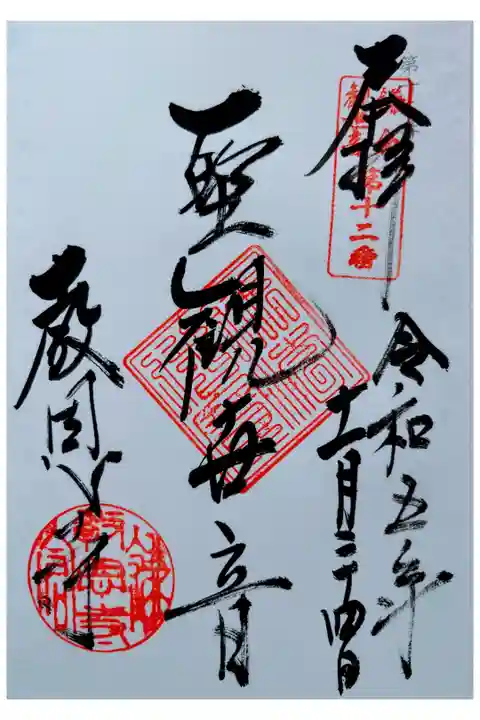 奉拝
第十二番
令和五年
十一月二十四日
聖観世音
教恩寺